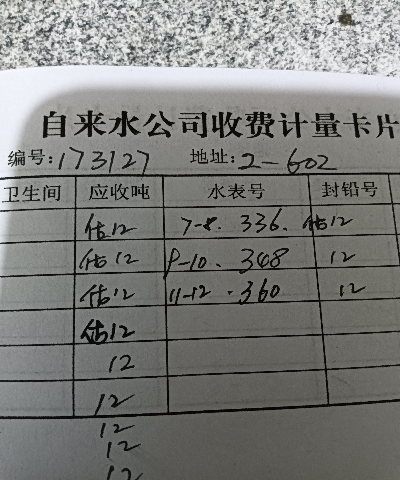 自来水公司收费计量卡片
编号:173127 地址:2-602
卫生间 应收吨 水表号 封铅号
估12 7-8. 336. 估12
估12 9-10. 348 12
估12 11-12. 360 12
估12
12
12
12
12
12